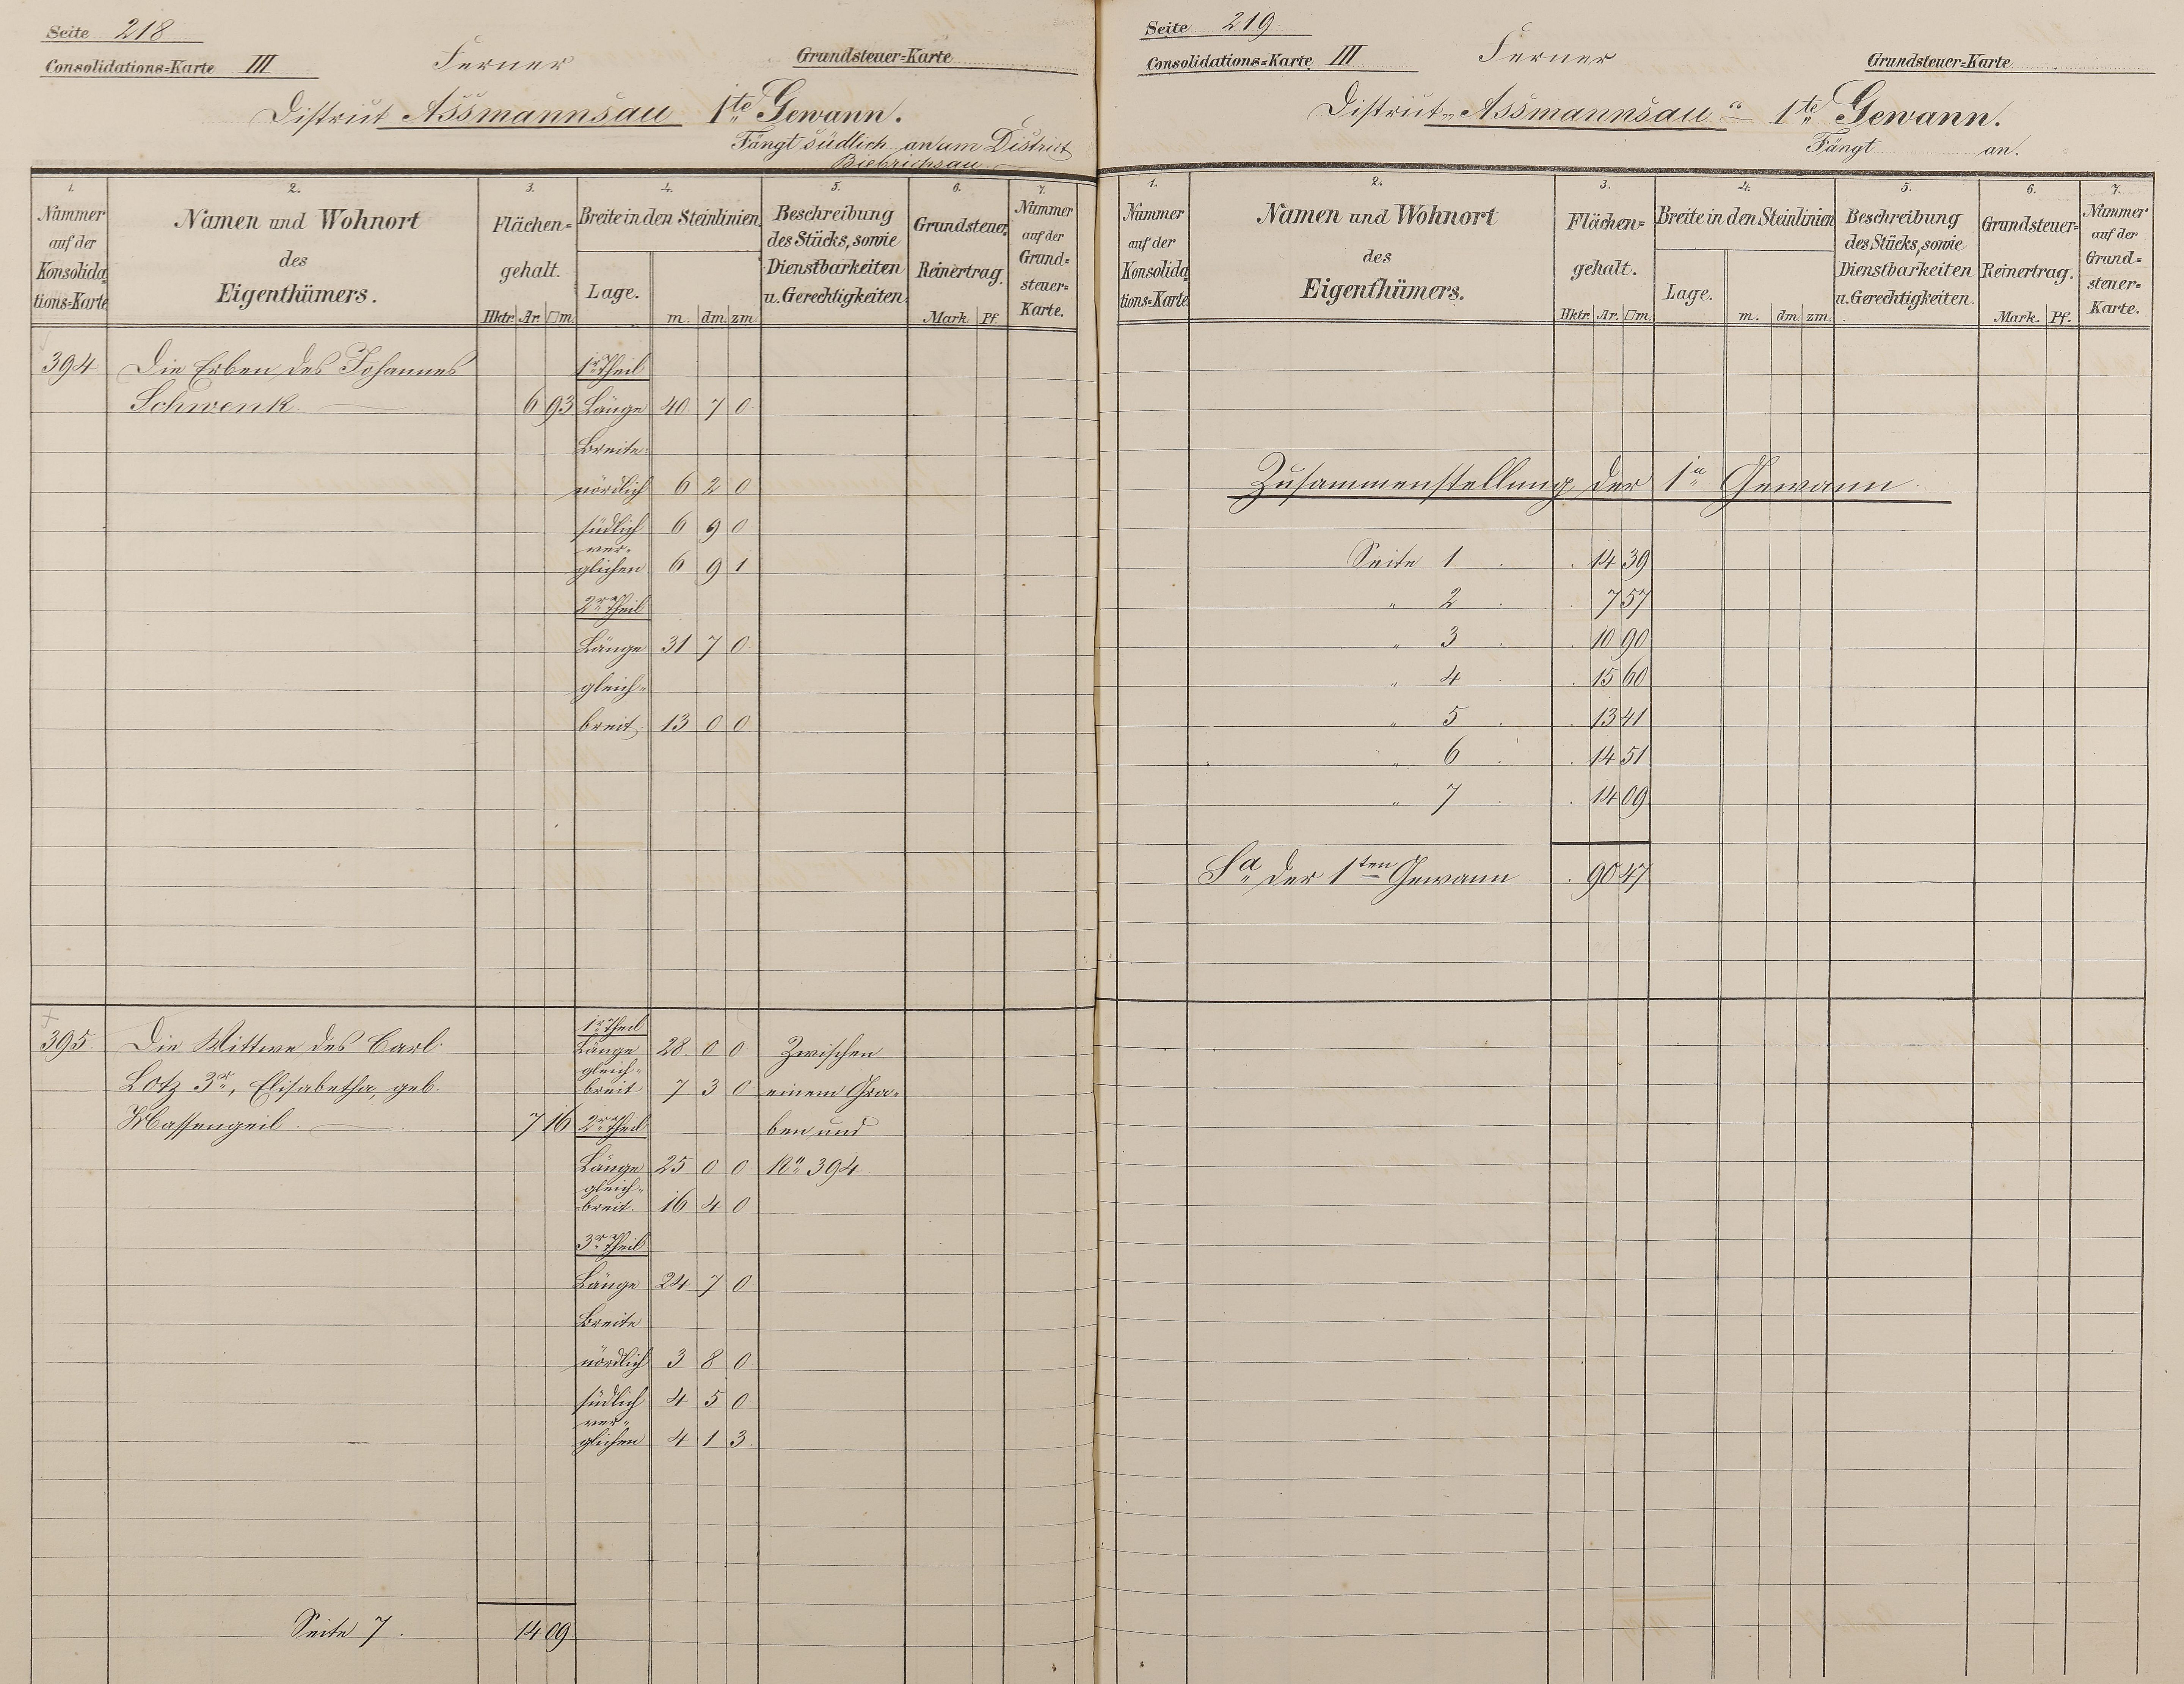 Seite 218
Consolidations=Karte III Ferner Grundsteuer=Karte
District Assmannsau 1te Gewann.
Fängt südlich an am District
Biebrichsau.
1. 2. 3. 4. 5. 6. 7.
Nummer auf der Konsolidations=Karte
Namen und Wohnort des Eigenthümers.
Flächen=gehalt.
Hktr. Ar. □m.
Breite in den Steinlinien
Lage. m. dm. zm.
Beschreibung des Stücks, sowie Dienstbarkeiten u. Gerechtigkeiten.
Grundsteuer Reinertrag.
Mark Pf.
Nummer auf der Grund=steuer=Karte.
394 Die Erben des Johannes 1r Theil
Schwenk. 6 93 Länge 40 7 0
Breite:
nördlich 6 2 0
südlich 6 9 0
ver-
glichen 6 9 1
2r Theil
Länge 31 7 0
gleich-
breit 13 0 0
1r Theil
395. Die Wittwe des Carl Länge 28 0 0 Zwischen
gleich-
Lotz 3r, Elisabetha, geb. breit 7 3 0 einem Gra-
Massengeil. 7 16 2r Theil ben und
Länge 25 0 0 No 394
gleich-
breit. 16 4 0
3r Theil
Länge 24 7 0
Breite
nördlich 3 8 0
südlich 4 5 0
ver-
glichen 4 1 3.
Seite 7. 14 09
Seite 219.
Consolidations=Karte III Ferner Grundsteuer=Karte
District „Assmannsau“ 1te Gewann.
Fängt an.
1. 2. 3. 4. 5. 6. 7.
Nummer auf der Konsolidations=Karte
Namen und Wohnort des Eigenthümers.
Flächen=gehalt.
Hktr. Ar. □m.
Breite in den Steinlinien
Lage. m. dm. zm.
Beschreibung des Stücks, sowie Dienstbarkeiten u. Gerechtigkeiten.
Grundsteuer=Reinertrag.
Mark. Pf.
Nummer auf der Grund=steuer=Karte.
Zusammenstellung der 1n Gewann.
Seite 1 . . 14 39
„ 2 . . 7 57
„ 3 . . 10 90
„ 4 . . 15 60
„ 5 . . 13 41
„ 6 . . 14 51
„ 7 . . 14 09
Sa der 1ten Gewann . 90 47